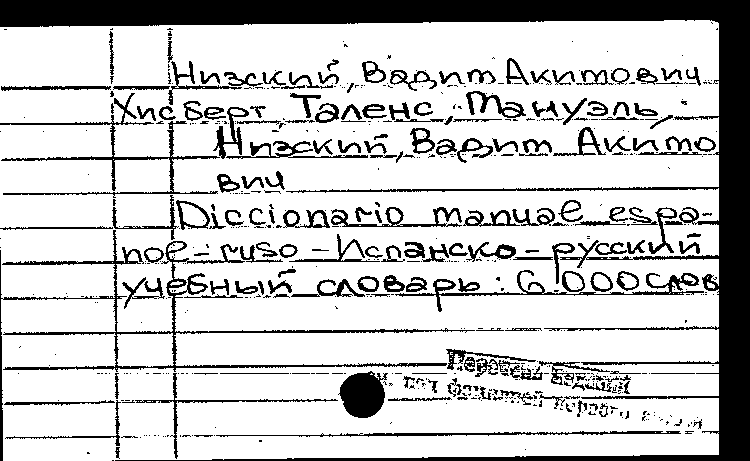 Низский, Вадим Акимович
Хисберт Таленс, Мануэль,
Низский, Вадим Акимо
вич
Diccionario manual espa-
nol-ruso - Испанско-русский
учебный словарь: 6.000 слов
Перечень изданий
см. под фамилией первого автора